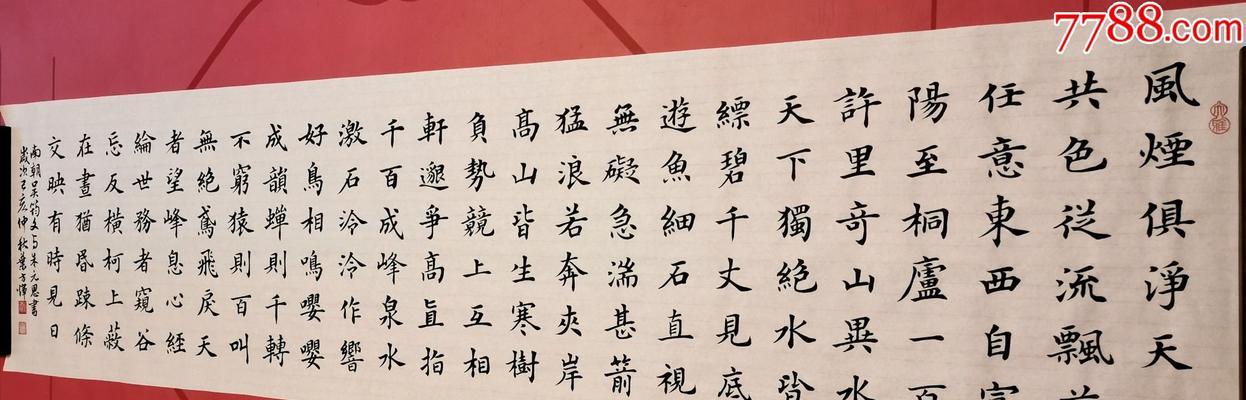 7788.com
大雅
風煙俱淨天
共色從流飄
任意東西自富
陽至桐廬一百
許里奇山異水
天下獨絕水皆
縹碧千丈見底
遊魚細石直視
無礙急湍甚箭
猛浪若奔夾岸
髙山皆生寒樹
負勢競上互相
軒邈爭高直指
千百成峰泉水
激石泠泠作響
好鳥相鳴嚶嚶
成韻蟬則千轉
不窮猿則百叫
無絕鳶飛戾天
者望峰息心經
綸世務者窺谷
忘反橫柯上蔽
在晝猶昏踈條
交映有時見日
南朝吴筠文与朱元思書
歲次己亥仲秋葉方